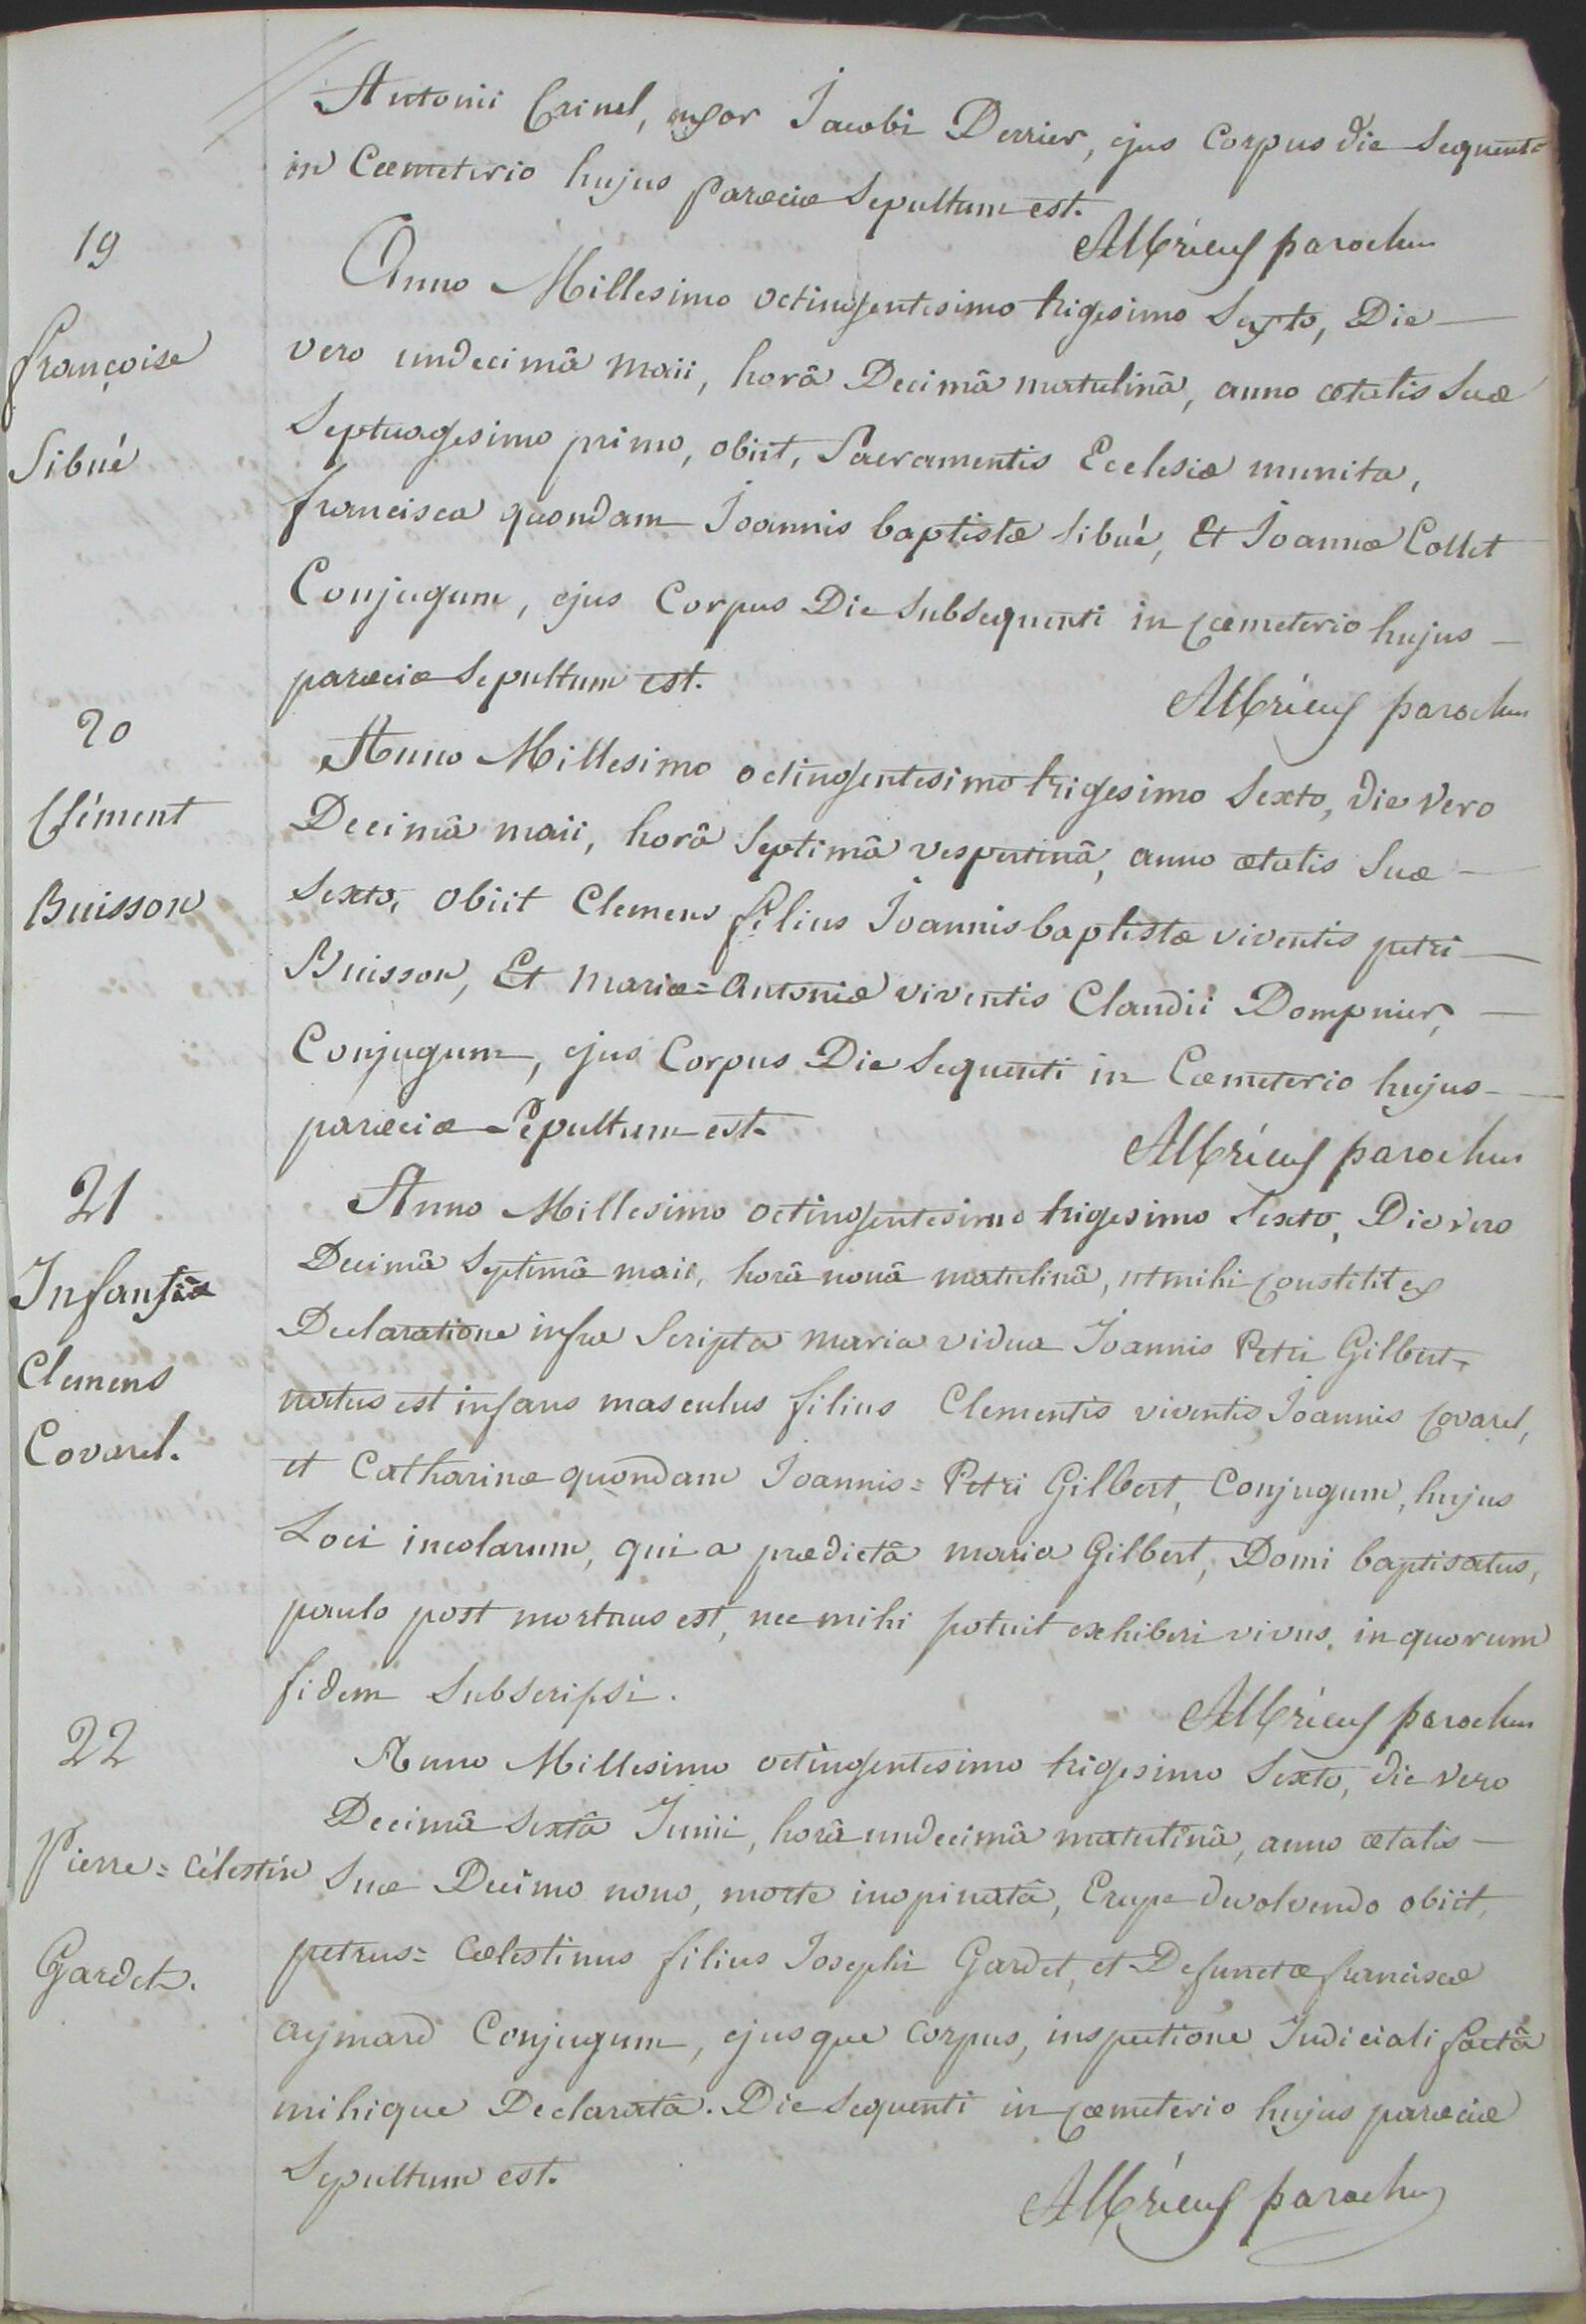 Antonii Crinel, uxor Jacobi Derrier, ejus Corpus die Sequenti
in Cœmeterio hujus parœciæ Sepultum est.
Albrieux parochus
19
françoise
Sibué
Anno Millesimo octingentesimo trigesimo Sexto, Die
vero undecimâ maii, horâ Decimâ matutinâ, anno ætatis Suæ
Septuagesimo primo, obiit, Sacramentis Ecclesiæ munita,
francisca quondam Joannis baptistæ Sibué, Et Joannæ Collet
Conjugum, ejus Corpus Die Subsequenti in cœmeterio hujus
parœciæ Sepultum est.
Albrieux parochus
20
Clément
Buisson
Anno Millesimo octingentesimo trigesimo Sexto, die vero
Decimâ maii, horâ Septimâ vespertinâ, anno ætatis Suæ
Sexto, obiit Clemens filius Joannis baptistæ viventis petri
Buisson, Et Mariæ=Antoniæ viventis Claudii Dompnier,
Conjugum, ejus Corpus Die Sequenti in Cœmeterio hujus
parœciæ Sepultum est.
Albrieux parochus
21
Infans
Clemens
Covarel.
Anno Millesimo octingentesimo trigesimo Sexto, Die vero
Decimâ Septimâ maii, horâ nonâ matutinâ, ut mihi constitit ex
Declaratione infra Scripta maria vidua Joannis Petri Gilbert,
natus est infans masculus filius Clementis viventis Joannis Covarel,
et Catharinæ quondam Joannis=Petri Gilbert, Conjugum, hujus
Loci incolarum, qui a prædictâ maria Gilbert, Domi baptisatus,
paulo post mortuus est, nec mihi potuit exhiberi vivus. in quorum
fidem Subscripsi.
Albrieux parochus
22
Pierre=Célestin
Gardet.
Anno Millesimo octingentesimo trigesimo Sexto, die vero
Decimâ Sextâ Junii, horâ undecimâ matutinâ, anno ætatis
Suæ Decimo nono, morte inopinatâ, E rupe devolvendo obiit,
petrus=Cœlestinus filius Josephi Gardet, et Defunctæ franciscæ
aymard Conjugum, ejusque Corpus, inspectione Judiciali factâ
mihique Declaratâ. Die Sequenti in cœmeterio hujus parœciæ
Sepultum est.
Albrieux parochus